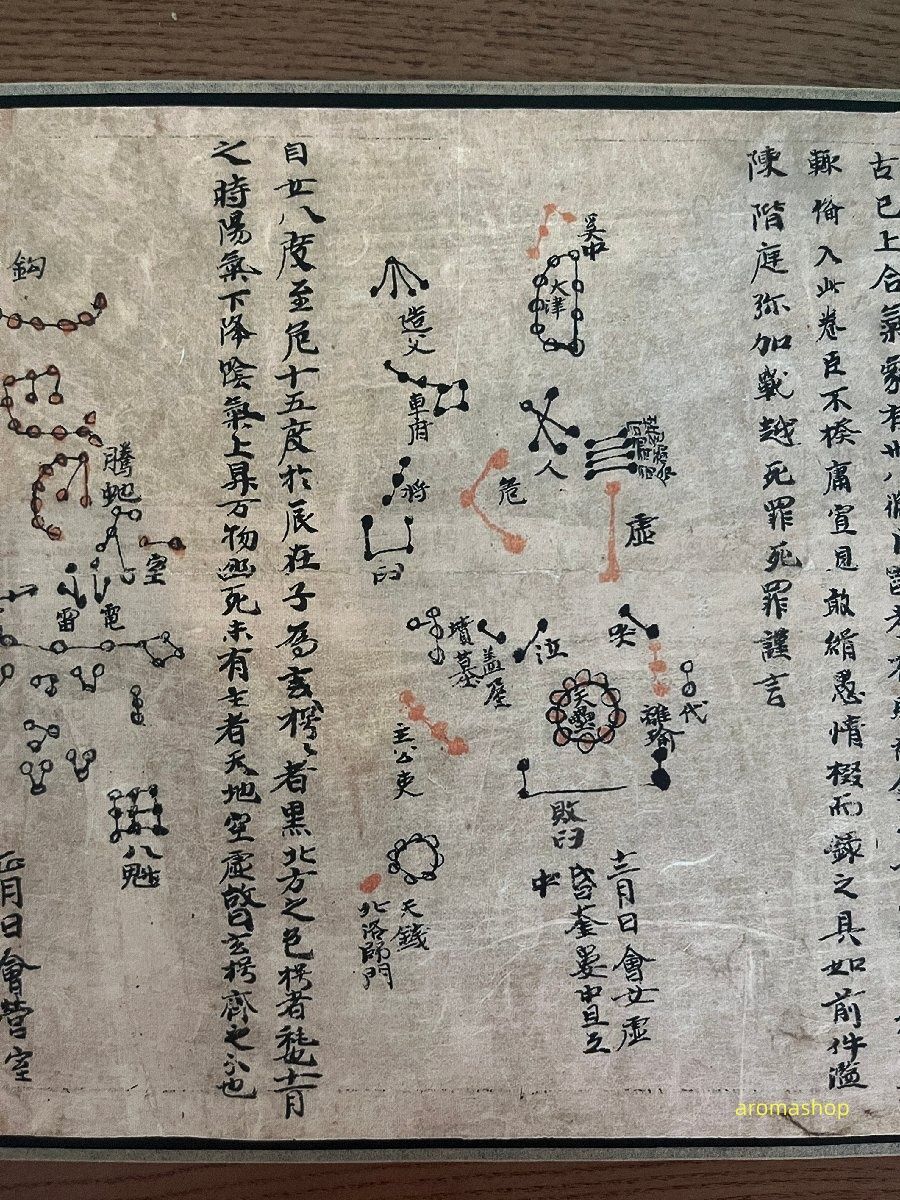 古已上合氣象有卌八條
輙偹入此卷臣不揆庸冥見敢緝愚情掇而録之具如前件濫
陳階庭弥加戰越死罪死罪謹言
奚仲
天津
人
虛
危
哭
泣
代
離瑜
天壘
敗臼
十二月日會女虛
昏奎婁中旦氐
中
造父
車府
将
臼
墳墓
盖屋
主公吏
天錢
北落師門
自女八度至危十五度於辰在子為玄枵〻者黑北方之色枵者秏也十一月
之時陽氣下降陰氣上昇万物幽死未有生者天地空虛曰玄枵齊之分也
鈎
騰虵
室
電
雷
八魁
正月日會營室
aromashop